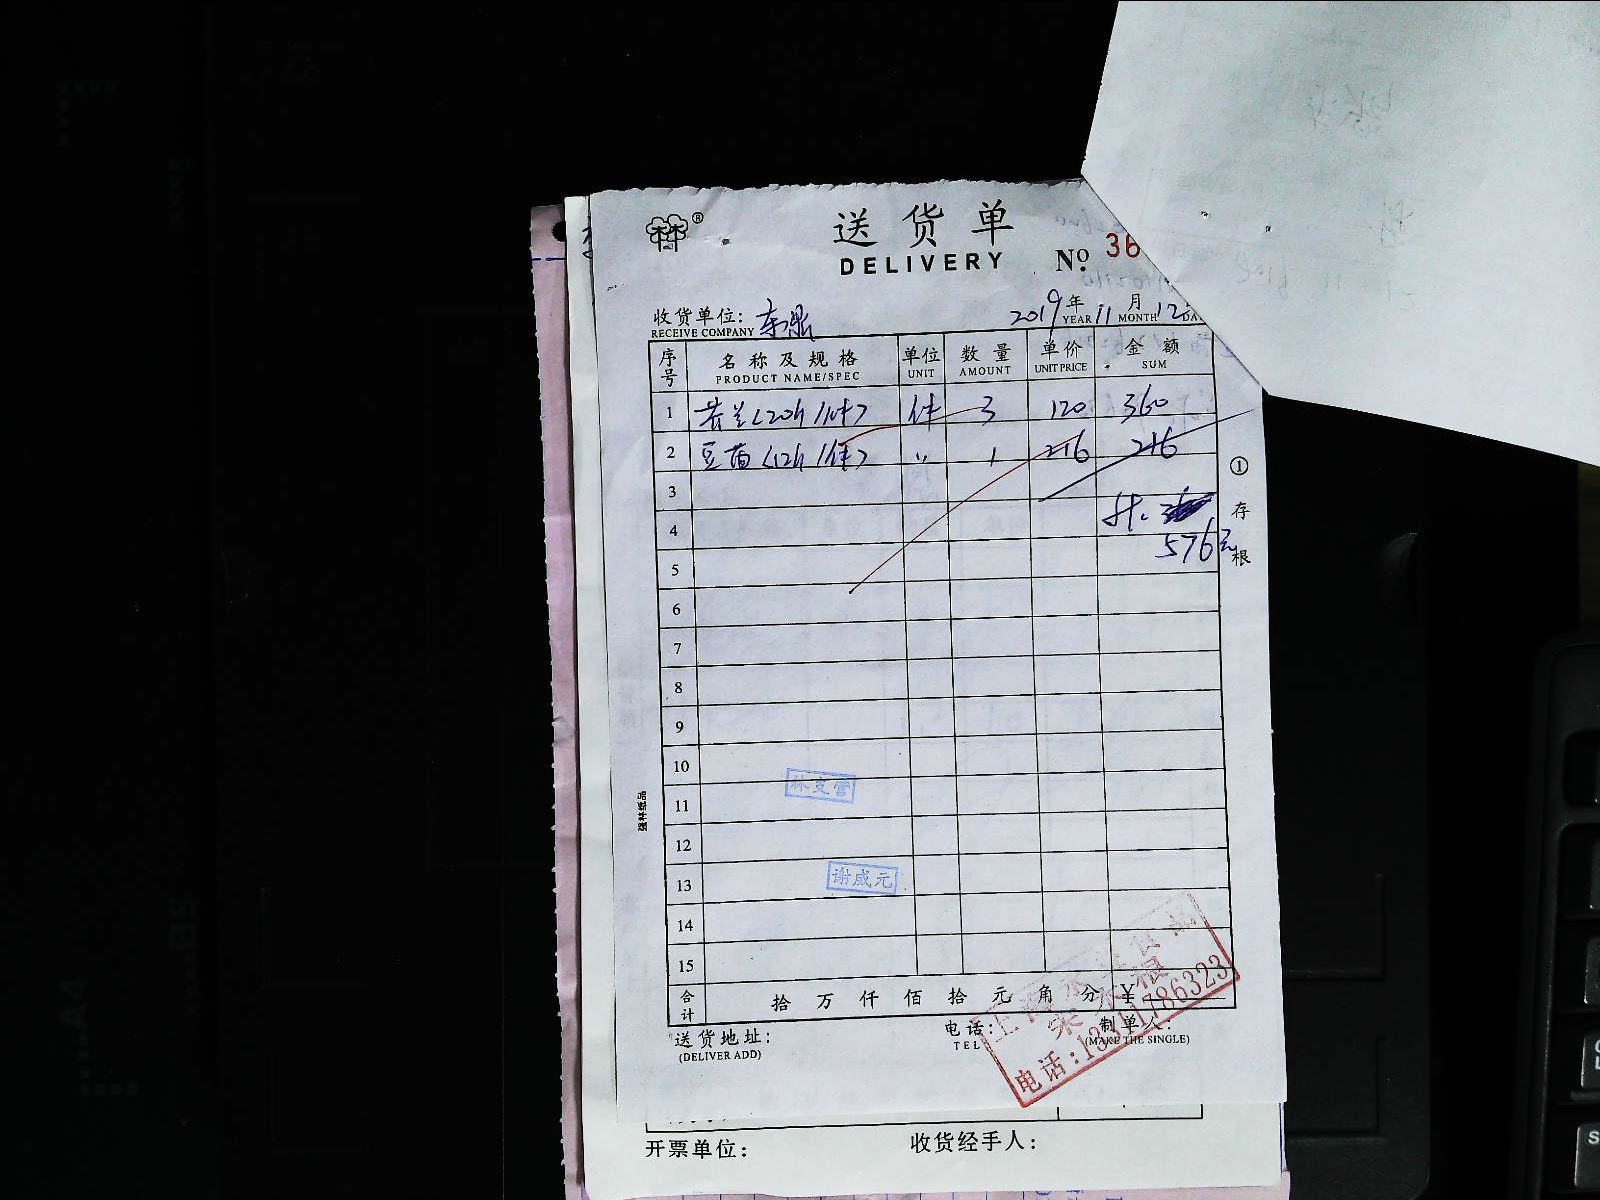 送货单
DELIVERY
No. 36
收货单位: 东鼎
RECEIVE COMPANY
2019年 11月 12
YEAR MONTH DA
序号 名称及规格 单位 数量 单价 金额
PRODUCT NAME/SPEC UNIT AMOUNT UNIT PRICE SUM
1 芥兰(20h/件) 件 3 120 360
2 豆苗(12h/件) 〃 1 216 216
3
4 计.
576元
5
6
7
8
9
10
11
12
13
14
15
① 存根
强林纸品
林支营
谢咸元
合计 拾 万 仟 佰 拾 元 角 分 ¥
送货地址: 电话: 制单人:
(DELIVER ADD) TEL (MAKE THE SINGLE)
电话:13311786323
开票单位: 收货经手人:
A4
B5